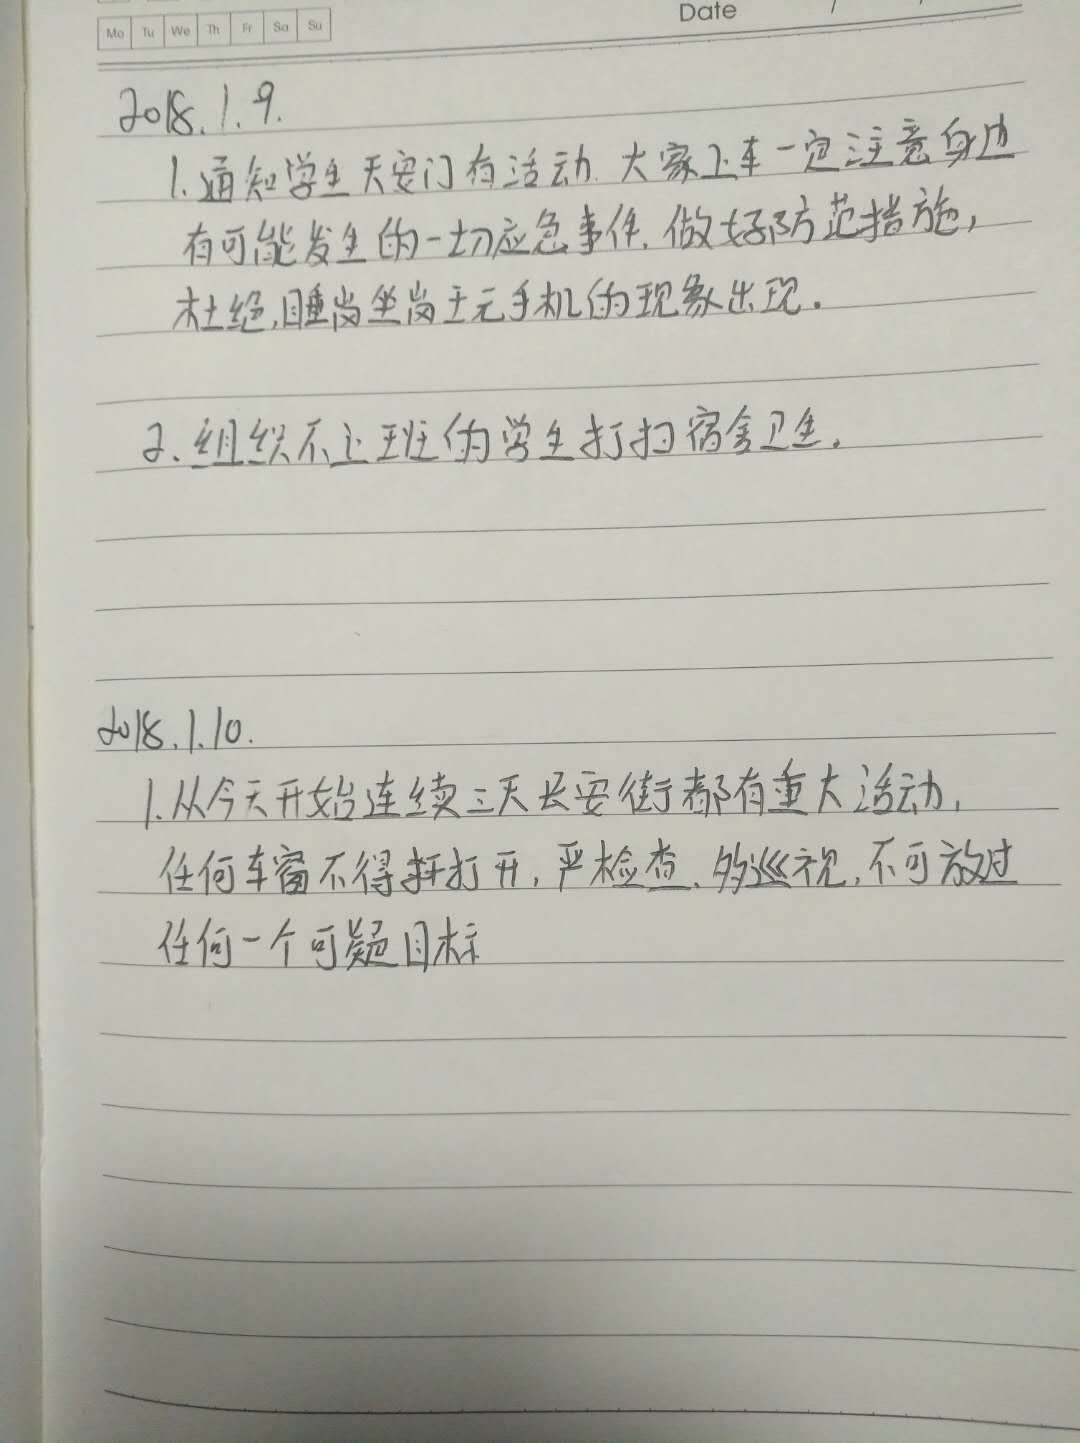 Mo Tu We Th Fr Sa Su
Date / /
2018.1.9.
1.通知学生天安门有活动.大家上车一定注意身边
有可能发生的一切应急事件.做好防范措施,
杜绝,睡岗坐岗王元手机的现象出现.
2.组织不上班的学生打扫宿舍卫生.
2018.1.10.
1.从今天开始连续三天长安街都有重大活动,
任何车窗不得打开,严检查、多巡视,不可放过
任何一个可疑目标